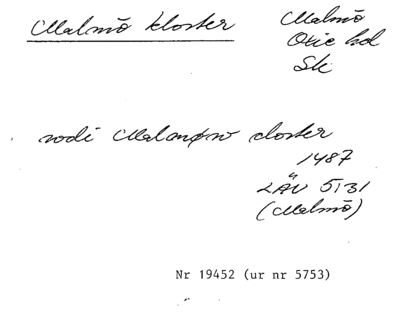 Malmö kloster
Malmö
Oxie hd
Sk
wdi Malmøw closter
1487
LÄU 5131
(Malmö)
Nr 19452 (ur nr 5753)